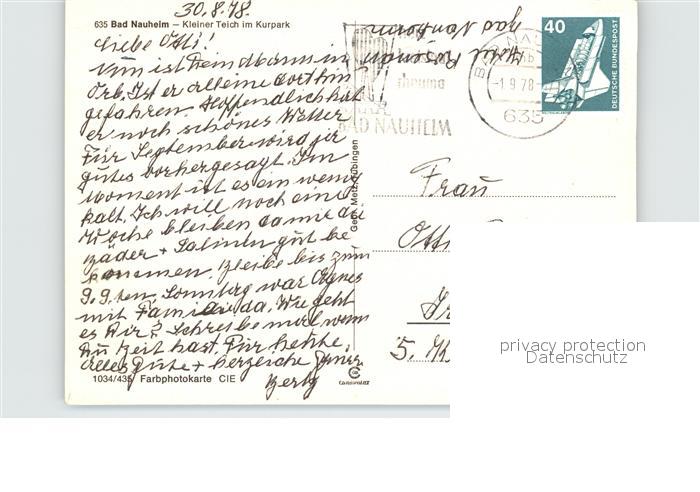 30.8.78.
635 Bad Nauheim – Kleiner Teich im Kurpark
Liebe Otti!
Nun ist Feindbann in
Orb. Ist er alleine dorthin
gefahren. Hoffendlich hat
er noch schönes Wetter
Für September wird ja
gutes vorhergesagt. Im
Moment ist es ein wenig
kalt. Ich will noch eine
Woche bleiben da mir die
Bäder + Salinen gut be
kommen. Bleibe bis zum
9.9. hier. Sonntag war Agnes
mit Familie da. Wie geht
es Dir? Schreibe mal, wenn
Du Zeit hast. Für heute,
alles gute + herzliche
Berty
1034/435 Farbphotokarte CIE
Gebr. Metz, Tübingen
Bad Nauheim
BAD NAUHEIM
-1.9.78
635
40
DEUTSCHE BUNDESPOST
Frau
Otti
5. K
privacy protection
Datenschutz